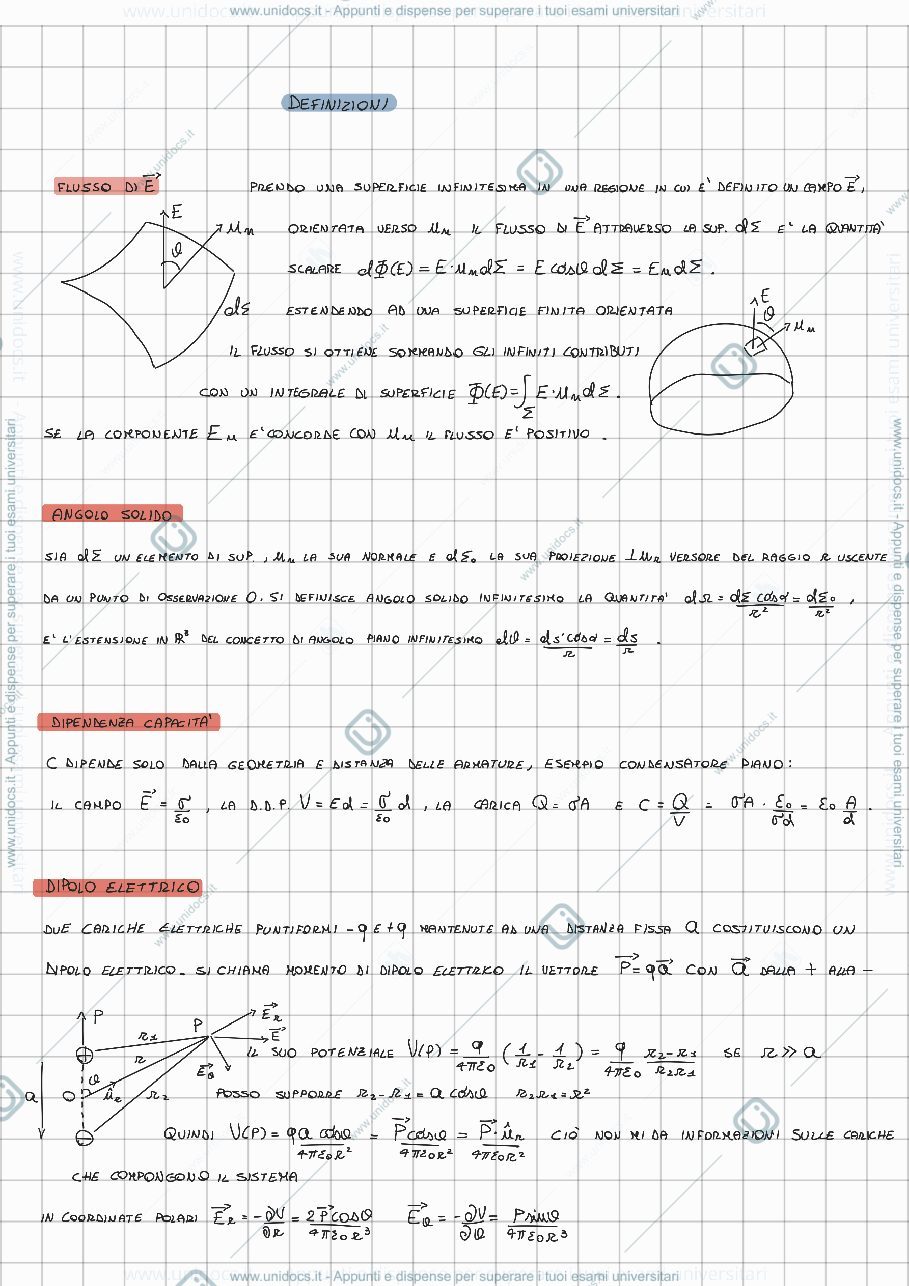 www.unidocs.it - Appunti e dispense per superare i tuoi esami universitari
DEFINIZIONI
FLUSSO DI E⃗
PRENDO UNA SUPERFICIE INFINITESIMA IN UNA REGIONE IN CUI E' DEFINITO UN CAMPO E⃗,
E
uₙ
θ
dΣ
ORIENTATA VERSO uₙ IL FLUSSO DI E⃗ ATTRAVERSO LA SUP. dΣ E' LA QUANTITA'
SCALARE dΦ(E) = E·uₙdΣ = E cosθ dΣ = EₙdΣ.
ESTENDENDO AD UNA SUPERFICIE FINITA ORIENTATA
E
θ
uₙ
IL FLUSSO SI OTTIENE SOMMANDO GLI INFINITI CONTRIBUTI
CON UN INTEGRALE DI SUPERFICIE Φ(E)=∫_Σ E·uₙdΣ.
SE LA COMPONENTE Eₙ E' CONCORDE CON uₙ IL FLUSSO E' POSITIVO.
ANGOLO SOLIDO
SIA dΣ UN ELEMENTO DI SUP., uₙ LA SUA NORMALE E dΣ₀ LA SUA PROIEZIONE ⊥ u_R VERSORE DEL RAGGIO R USCENTE
DA UN PUNTO DI OSSERVAZIONE O. SI DEFINISCE ANGOLO SOLIDO INFINITESIMO LA QUANTITA' dΩ = dΣ cosα/r² = dΣ₀/r²,
E' L'ESTENSIONE IN ℝ³ DEL CONCETTO DI ANGOLO PIANO INFINITESIMO dθ = ds'cosα/r = ds/r.
DIPENDENZA CAPACITA'
C DIPENDE SOLO DALLA GEOMETRIA E DISTANZA DELLE ARMATURE, ESEMPIO CONDENSATORE PIANO:
IL CAMPO E⃗ = σ/ε₀, LA D.D.P. V = Ed = σ/ε₀ d, LA CARICA Q = σA E C = Q/V = σA · ε₀/σd = ε₀ A/d.
DIPOLO ELETTRICO
DUE CARICHE ELETTRICHE PUNTIFORMI -q E +q MANTENUTE AD UNA DISTANZA FISSA a COSTITUISCONO UN
DIPOLO ELETTRICO. SI CHIAMA MOMENTO DI DIPOLO ELETTRICO IL VETTORE P⃗ = qa⃗ CON a⃗ DALLA + ALLA -
P
r₁
P
E⃗_R
E⃗
E⃗_θ
r
θ
a
O
û_r
r₂
IL SUO POTENZIALE V(P) = q/4πε₀ (1/r₁ - 1/r₂) = q/4πε₀ r₂-r₁/r₂r₁ SE r >> a
POSSO SUPPORRE r₂-r₁ = a cosθ r₂r₁ = r²
QUINDI V(P) = qa cosθ/4πε₀r² = P⃗cosθ/4πε₀r² = P⃗·û_r/4πε₀r² CIÒ NON MI DA INFORMAZIONI SULLE CARICHE
CHE COMPONGONO IL SISTEMA
IN COORDINATE POLARI E⃗_R = -∂V/∂R = 2P⃗cosθ/4πε₀R³ E⃗_θ = -∂V/∂θ = P sinθ/4πε₀R³
www.unidocs.it - Appunti e dispense per superare i tuoi esami universitari